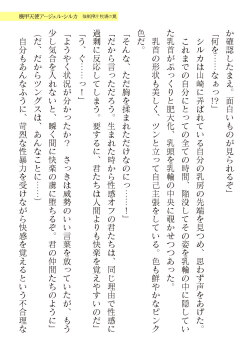 機甲天使アージェル・シルカ
か確認したまえ。面白いものが見られるぞ」
「何を……なぁっ!?」
シルカは山崎に弄ばれている自分の乳房の先端を見つめ、思わず声をあげた。
これまでの自分にとっての全ての時間、陥没してその姿を乳輪の中に隠してい
た乳首がぷっくりと肥大化、乳頭を乳輪の中央に覗かせつつあった。
乳首の形も美しく、ツンと尖って自己主張をしている。色も鮮やかなピンク
色だ。
「そんな、ただ胸を揉まれただけなのにっ……!」
「だから言っただろう。生まれた時から性感オフの君たちは、同じ理由で性感に
過剰に反応してしまう。要するに、君たちは人間よりも快楽を覚えやすいのだ」
「う、ぐ……っ!」
「ようやく状況が分かったか?　さっきは威勢のいい言葉を放っていたが、もう
少し気合を入れないと、瞬く間に快楽の虜に堕ちるぞ。君の仲間たちのように」
(だ、だからツングースは、あんなことに……)
自分もあんなふうに、苛烈な性暴力を受けながら快感を覚えるという不合理な